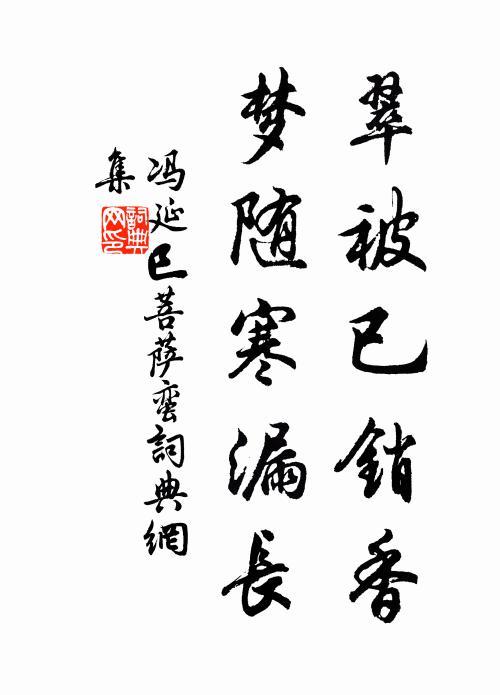 翠被已銷香
梦随寒漏長
冯延巳菩萨蛮詞典網
集
詞典网印